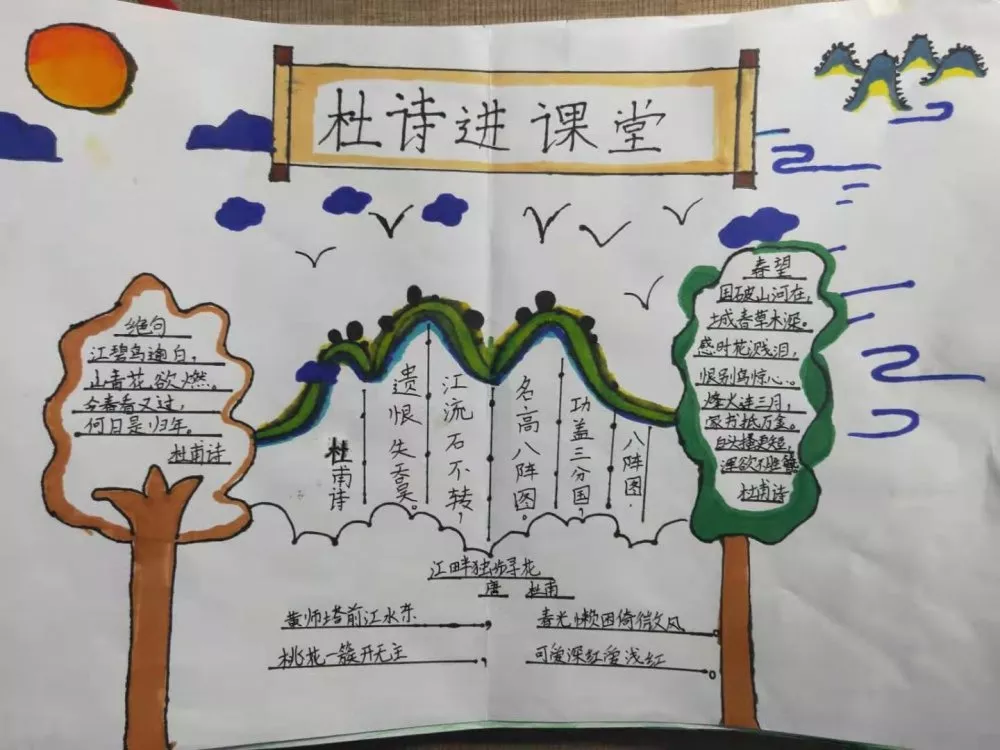 杜诗进课堂
绝句
江碧鸟逾白,
山青花欲燃。
今春看又过,
何日是归年。
杜甫诗
八阵图.
功盖三分国,
名高八阵图。
江流石不转,
遗恨失吞吴。
杜甫诗
春望
国破山河在,
城春草木深。
感时花溅泪,
恨别鸟惊心。
烽火连三月,
家书抵万金。
白头搔更短,
浑欲不胜簪
杜甫诗
江畔独步寻花
唐 杜甫
黄师塔前江水东,
春光懒困倚微风。
桃花一簇开无主,
可爱深红爱浅红。